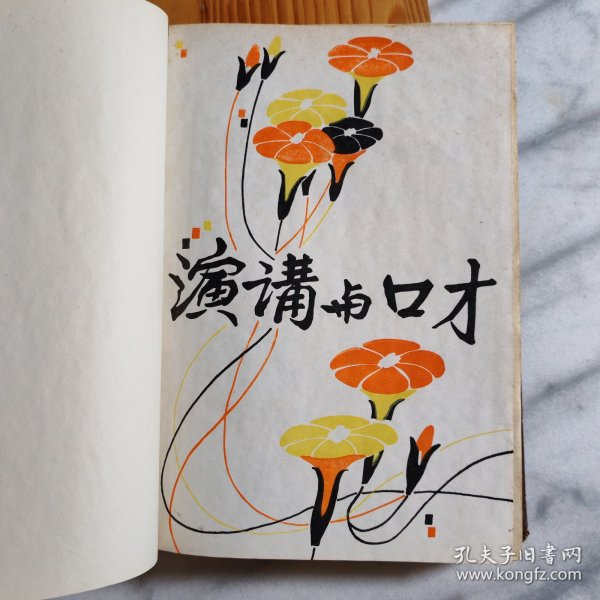 演講与口才
孔夫子旧書网
www.kongfz.com